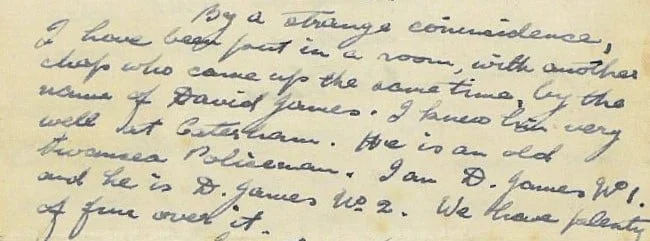 By a strange coincidence,
I have been put in a room, with another
chap who came up the same time, by the
name of David James. I knew him very
well at Caterham. He is an old
Swansea Policeman. I am D. James No 1.
and he is D. James No 2. We have plenty
of fun over it.